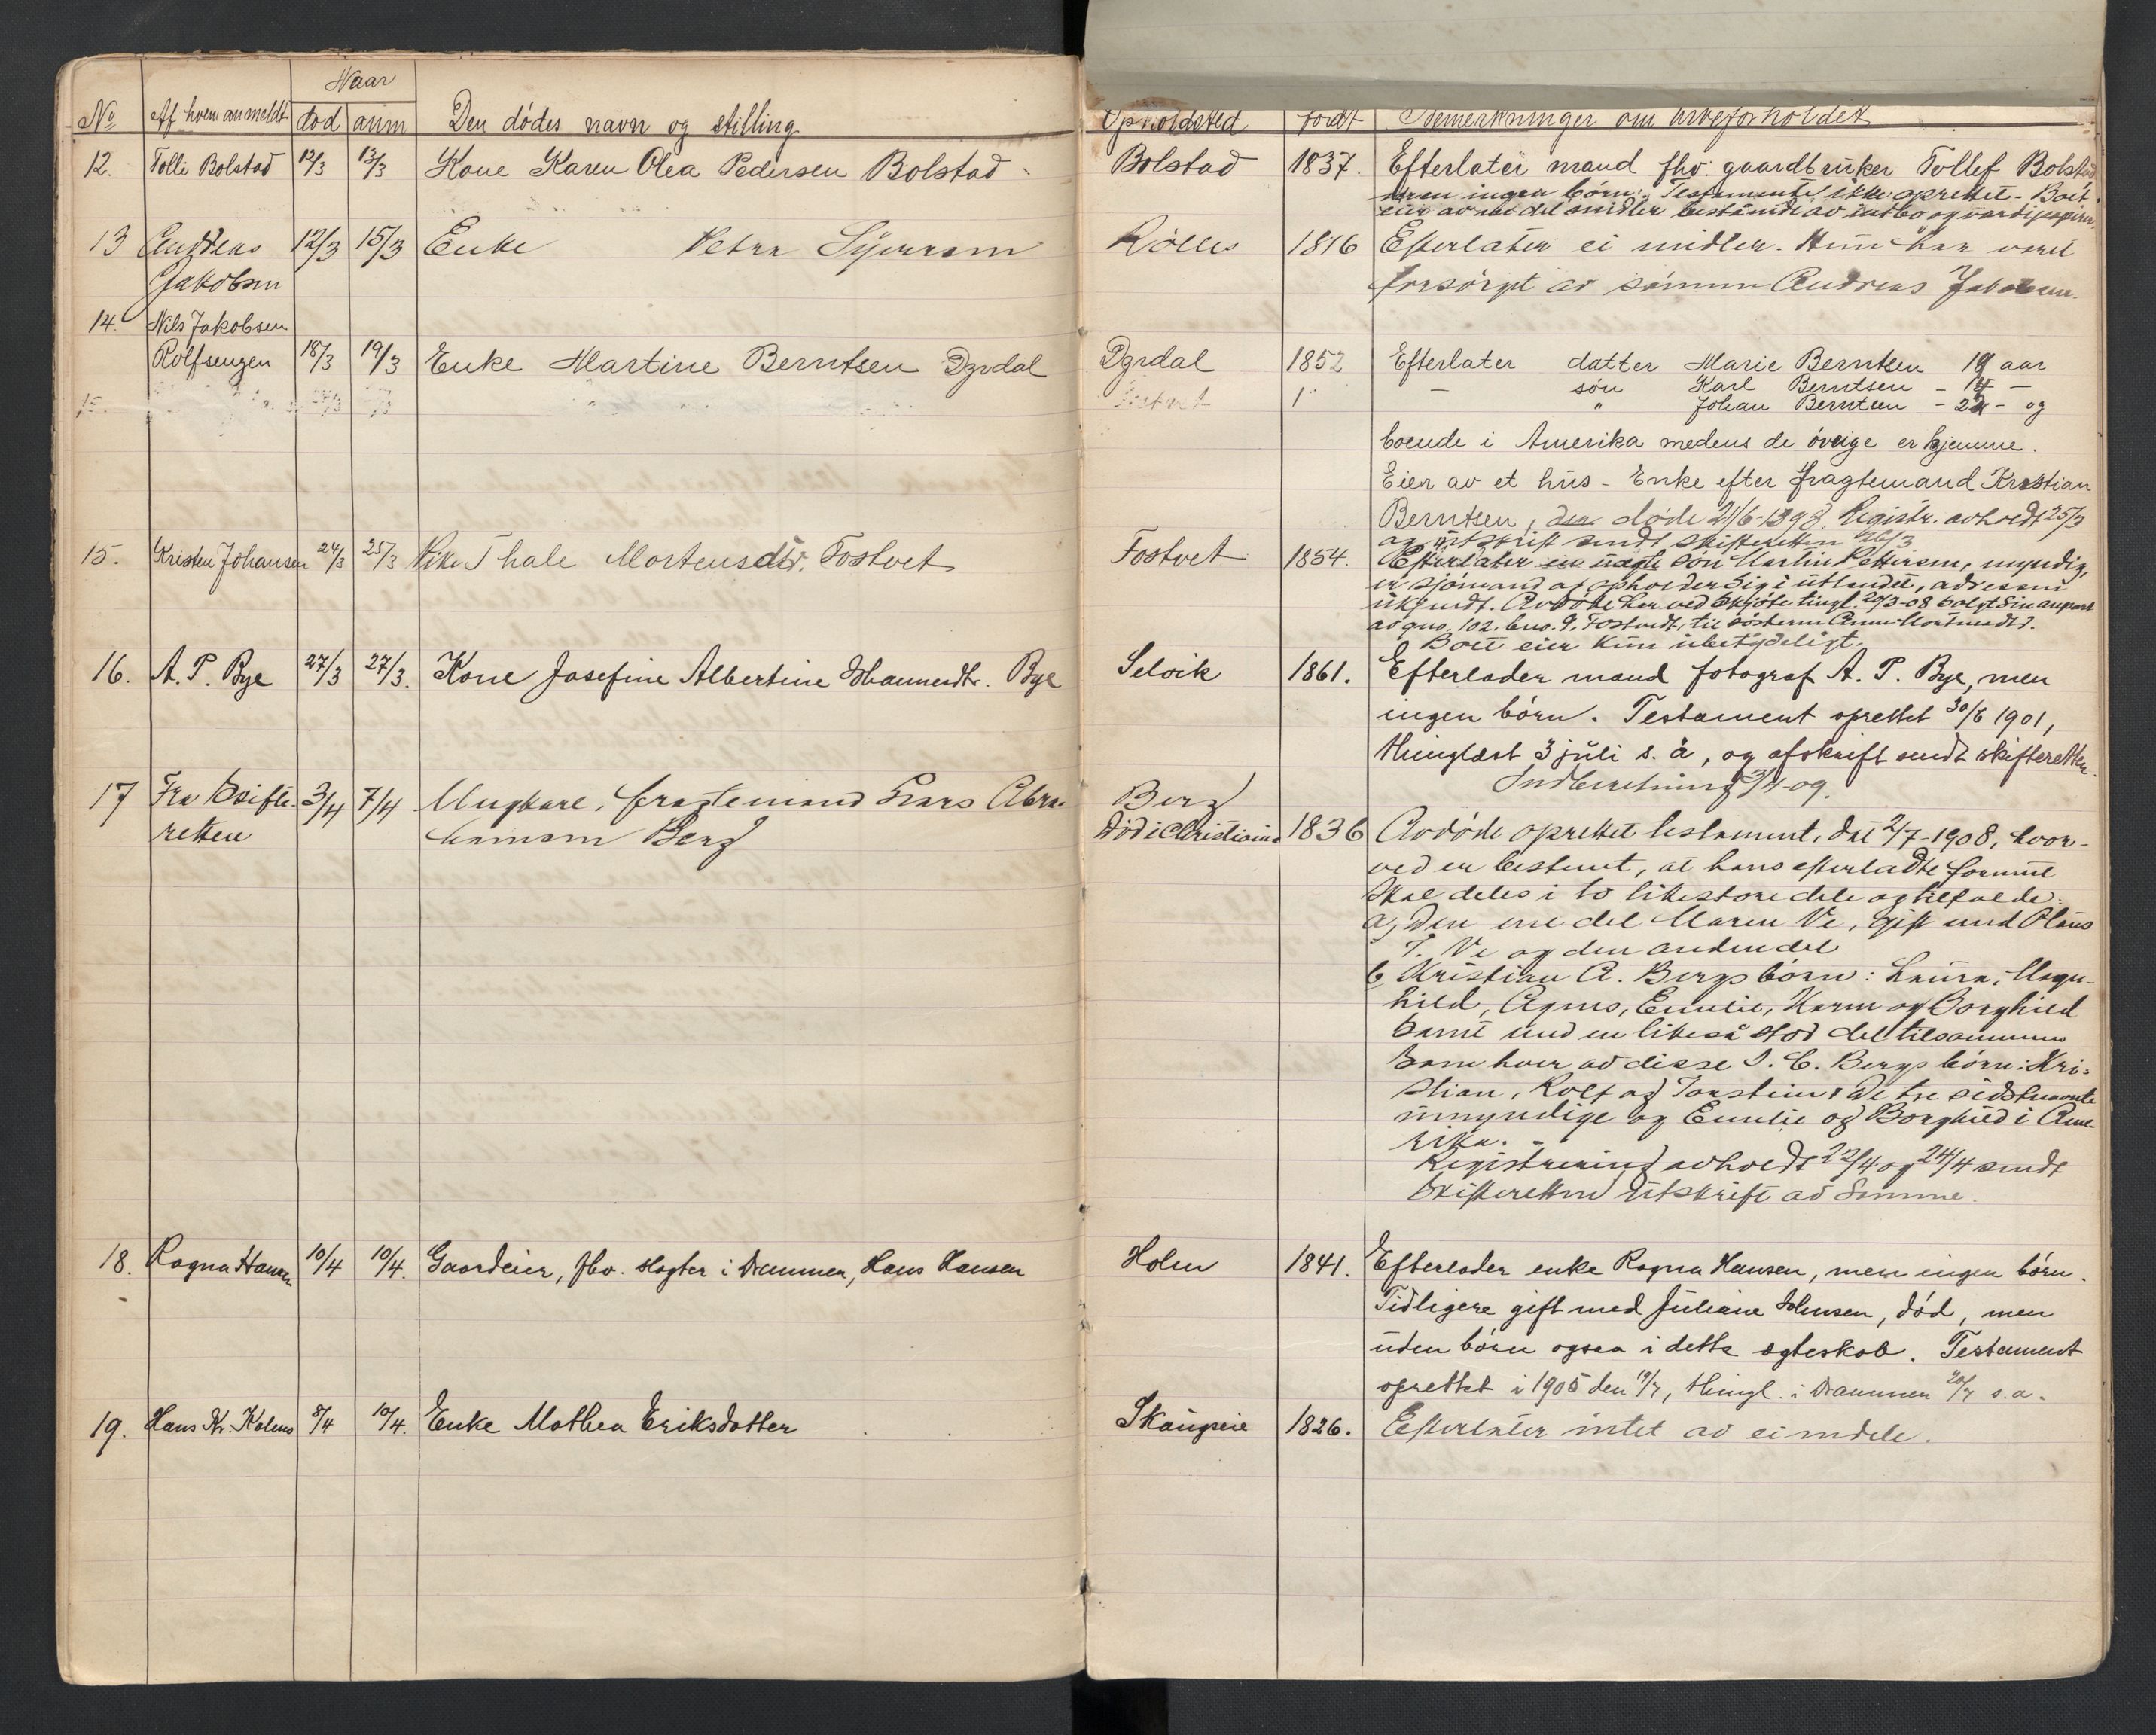 Naar
No Af hvem anmeldt död anm Den dödes navn og stilling Opholdsted födt Bemerkninger om arveforholdet
12. Tolli Bolstad 12/3 13/3 Kone Karen Olea Pedersen Bolstad Bolstad 1837. Efterlater mand fhv. gaardbruker Tollef Bolstad
men ingen börn. Testamente ikke oprettet. Boet
eier av midler bestaaende av indbo og værdipapirer
13 Andreas 12/3 15/3 Enke Petra 1816 Efterlater ei midler. Hun har været
Jakobsen forsörget av sönnen Andreas Jakobsen.
14. Nils Jakobsen
Rolfsengen 18/3 19/3 Enke Martine Berntsen Dyrdal Dyrdal 1852 Efterlater datter Marie Berntsen 19 aar
15. – sön Karl Berntsen – 14 –
" Johan Berntsen – 22 – og
boende i Amerika medens de övrige er hjemme.
Eier av et hus – Enke efter fragtemand Kristian
Berntsen, döde 21/6-1898. Registr. avholdt 25/3
og utskrift sendt skifteretten 26/3
15. Kristen Johansen 24/3 25/3 Pike Thale Mortensdtr. Fostvet Fostvet 1854. Efterlater en uægte sön Martin Pettersen, myndig,
er sjömand og opholder sig i utlandet, adressen
ukjendt. Avdöde har ved skjöte tingl. 20/3-08 solgt sin anpart
av gno. 102, bno. 9, Fostvedt, til sösteren Anne Mortensdtr.
Boet eier kun ubetydeligt.
16. A. P. Bye 27/3 27/3. Kone Josefine Albertine Johannesdtr. Bye Selvik 1861. Efterlader mand fotograf A. P. Bye, men
ingen börn. Testament oprettet 30/6 1901,
thinglæst 3 juli s. å, og afskrift sendt skifteretten.
Indberetning 3/4-09.
17 Fra Skifte- 3/4 7/4 Ungkarl, fragtemand Lars Abra- Berg
retten hamsen Berg Död i Christiania 1836 Avdöde oprettet testament, dat 2/7-1908, hvor-
ved er bestemt, at hans efterladte formue
skal deles i to likestore dele og tilfalde:
a, Den ene del Maren Ve, gift med Olaus
T. Ve og den anden del
b, Kristian A. Bergs börn: Laura, Magn-
hild, Agnes, Emilie, Karen og Borghild
samt med en likesaa stor del tilsammen
som hver av disse I. C. Bergs börn: Kri-
stian, Rolf og Torstein. De tre sidstnævnte
umyndige og Emilie og Borghild i Ame-
rika.
Registrering avholdt 22/4 og 24/4 sendt
Skifteretten utskrift av samme.
18. Ragna Hansen 10/4 10/4. Gaardeier, fhv. slagter i Drammen, Hans Hansen Holm 1841. Efterlader enke Ragna Hansen, men ingen börn.
Tidligere gift med Juliane Johnsen, död, men
uden börn ogsaa i dette ægteskab. Testament
oprettet i 1905 den 19/7, thingl. i Drammen 20/7 s.a.
19. Hans Kr. Kolnes 8/4 10/4. Enke Mathea Eriksdatter Skaugseie 1826. Efterlater intet av eiendele.